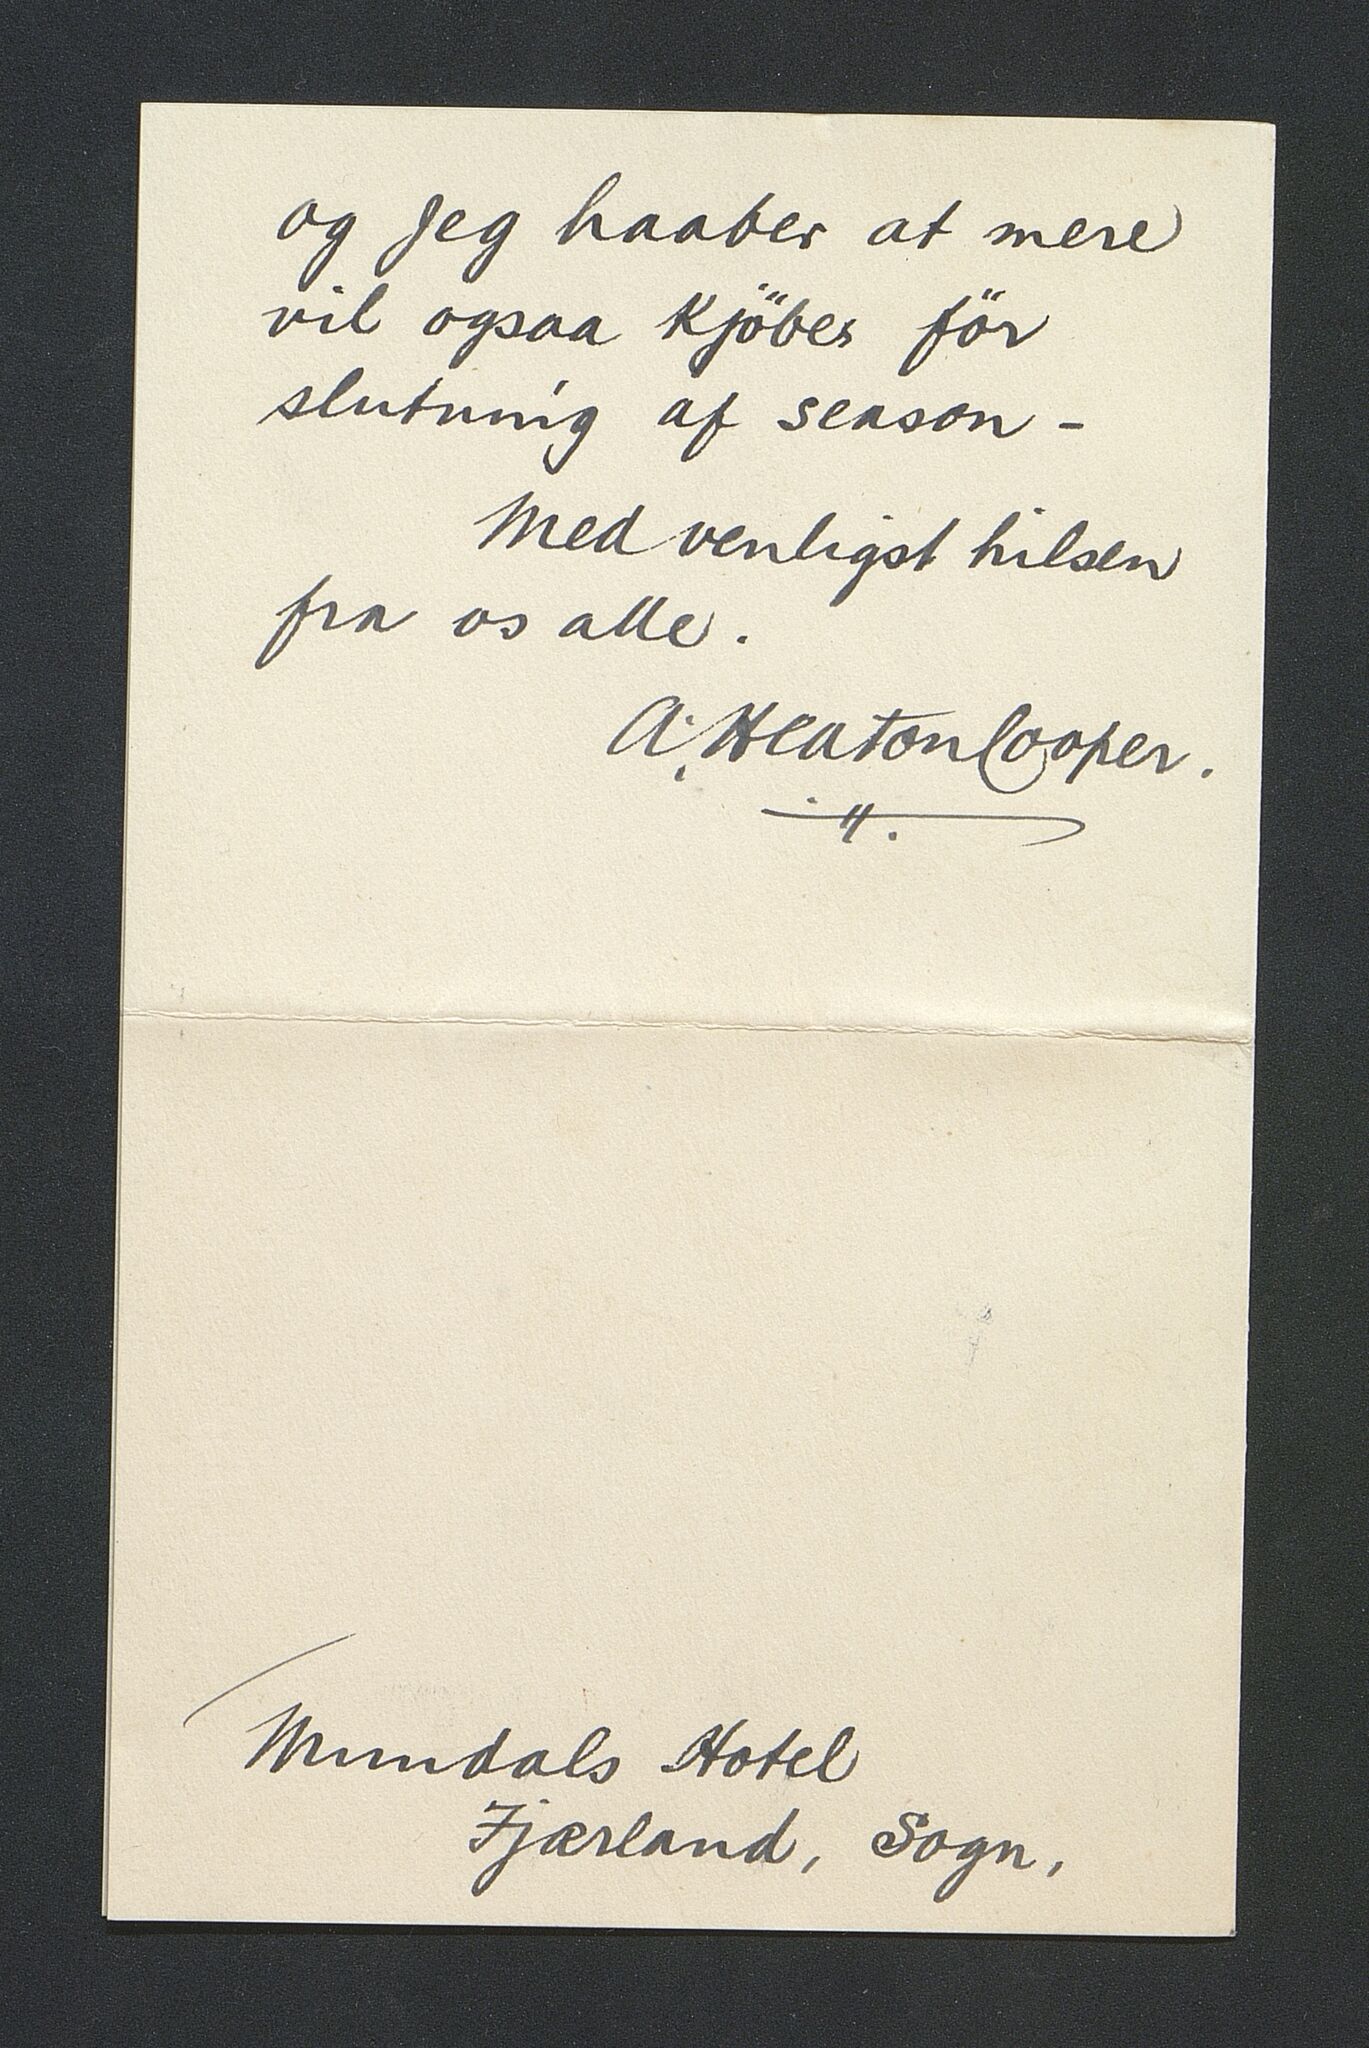 og jeg haaber at mere
vil ogsaa kjöbes för
slutning af season -
Med venligst hilsen
fra os alle.
A. Heaton Cooper.
Mundals Hotel
Fjærland, Sogn,